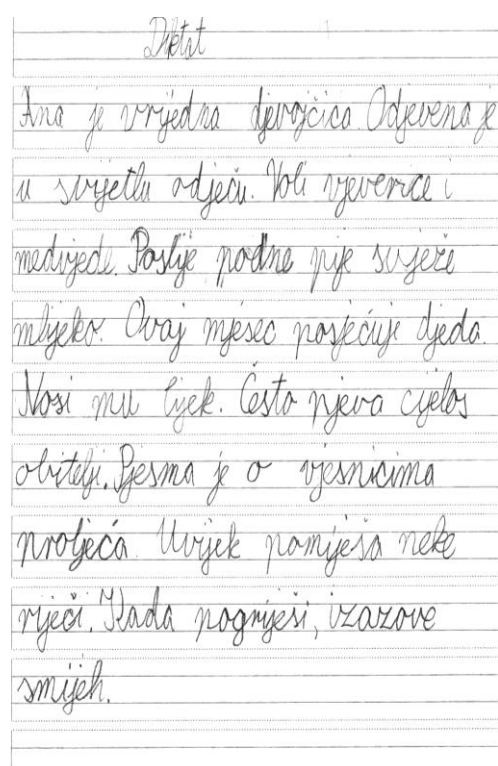 Diktat
Ana je vrijedna djevojčica. Odjevena je
u svijetlu odjeću. Voli vjeverice i
medvjede. Poslije podne pije svježe
mlijeko. Ovaj mjesec posjećuje djeda.
Nosi mu lijek. Često pjeva cijeloj
obitelji. Pjesma je o vjesnicima
proljeća. Uvijek pomiješa neke
riječi. Kada pogriješi, izazove
smijeh.